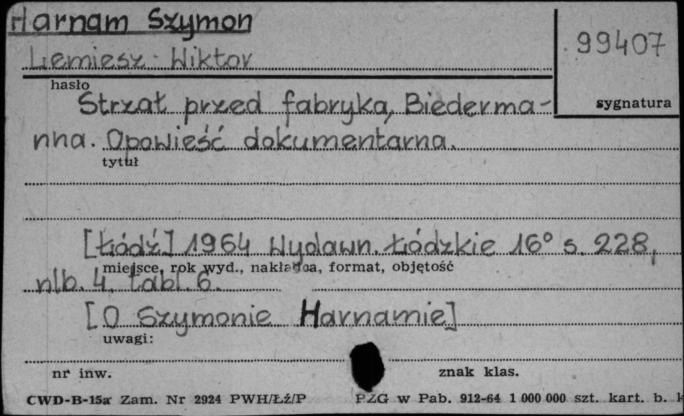 Harnam Szymon
Lemiesz Wiktor
99407
hasło
sygnatura
Strzał przed fabryką Biederma-
nna. Opowieść dokumentarna.
tytuł
[Łódź] 1964 Wydawn. Łódzkie 16° s. 228,
miejsce, rok wyd., nakładca, format, objętość
nlb. 4, tabl. 6.
[O Szymonie Harnamie]
uwagi:
nr inw.
znak klas.
CWD-B-15a Zam. Nr 2924 PWH/Łź/P PZG w Pab. 912-64 1 000 000 szt. kart. b. k